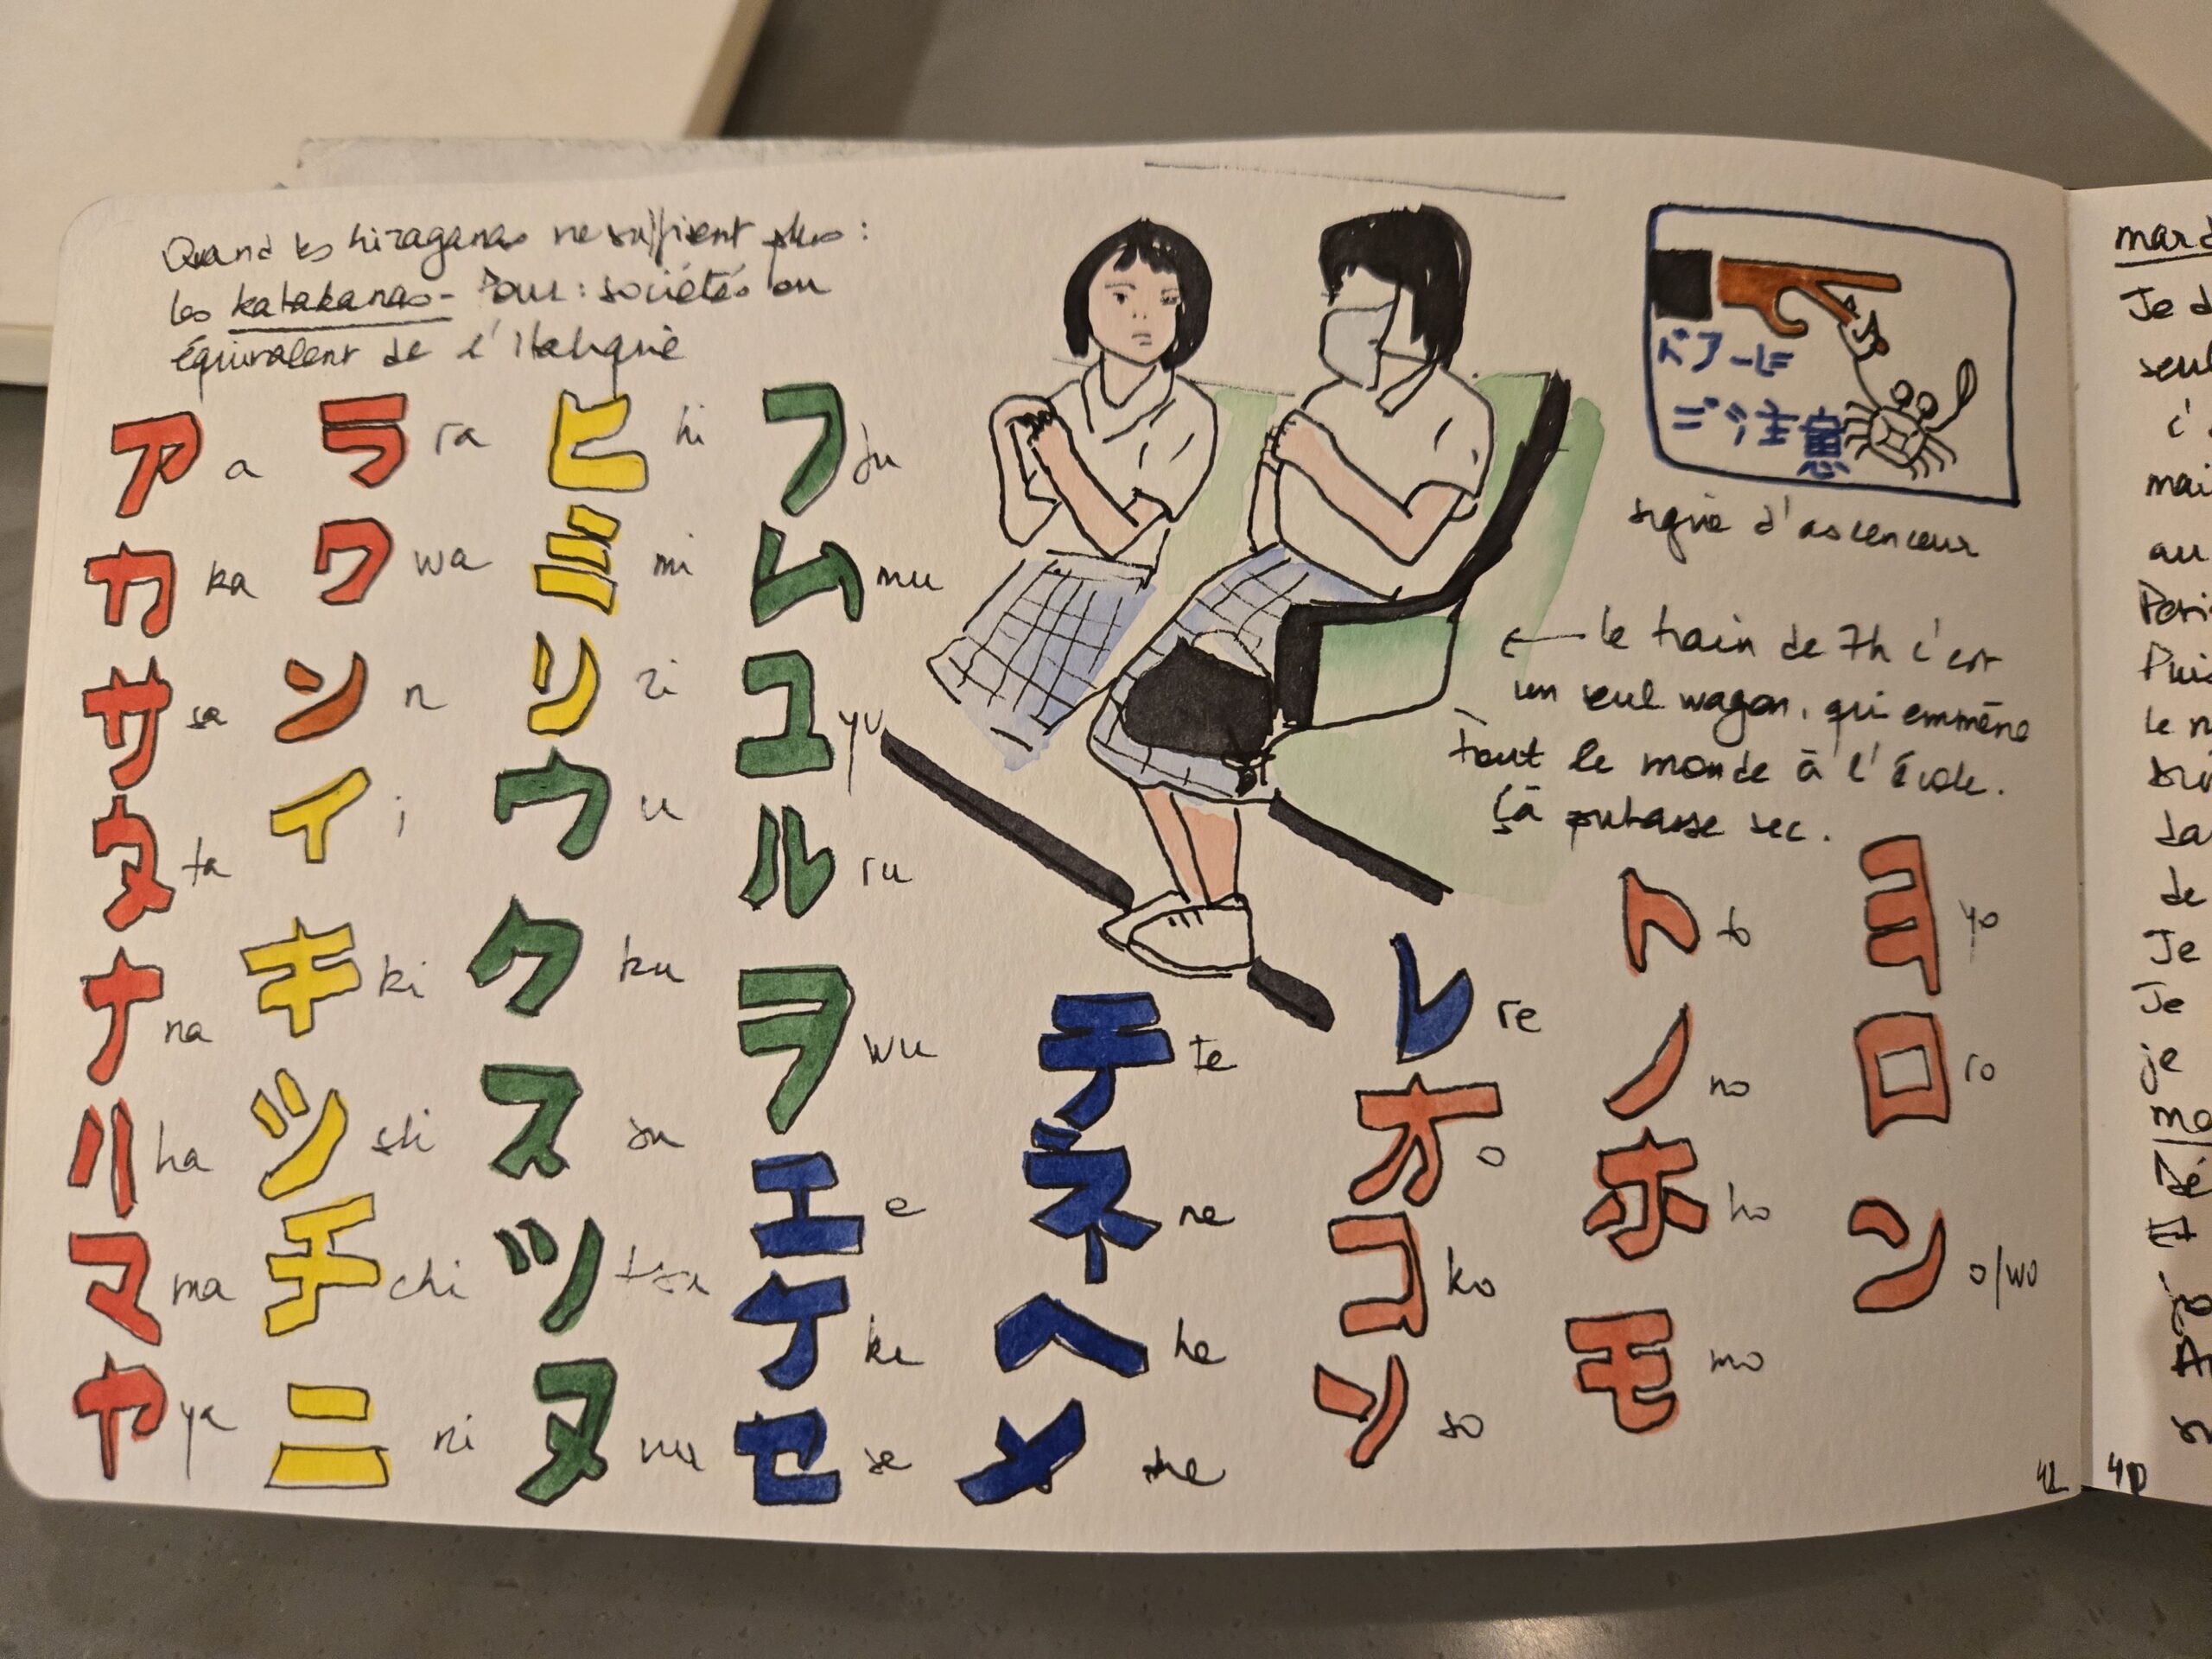 Quand les hiraganas ne suffisent plus :
les katakanas - Pour : sociétés ou
équivalent de l'italique
ア a
カ ka
サ sa
タ ta
ナ na
ハ ha
マ ma
ヤ ya
ラ ra
ワ wa
ン n
イ i
キ ki
シ shi
チ chi
ニ ni
ヒ hi
ミ mi
リ ri
ウ u
ク ku
ス su
ツ tsu
ヌ nu
フ fu
ム mu
ユ yu
ル ru
ヲ wu
エ e
ケ ke
セ se
テ te
ネ ne
ヘ he
メ me
レ re
オ o
コ ko
ソ so
ト to
ノ no
ホ ho
モ mo
ヨ yo
ロ ro
ン o/wo
ドアーに
ご注意
signe d'ascenceur
← le train de 7h c'est
un seul wagon, qui emmène
tout le monde à l'école.
Çà putasse sec.
42
Je
seul
c'
mai
au
le
de
Je
Je
je